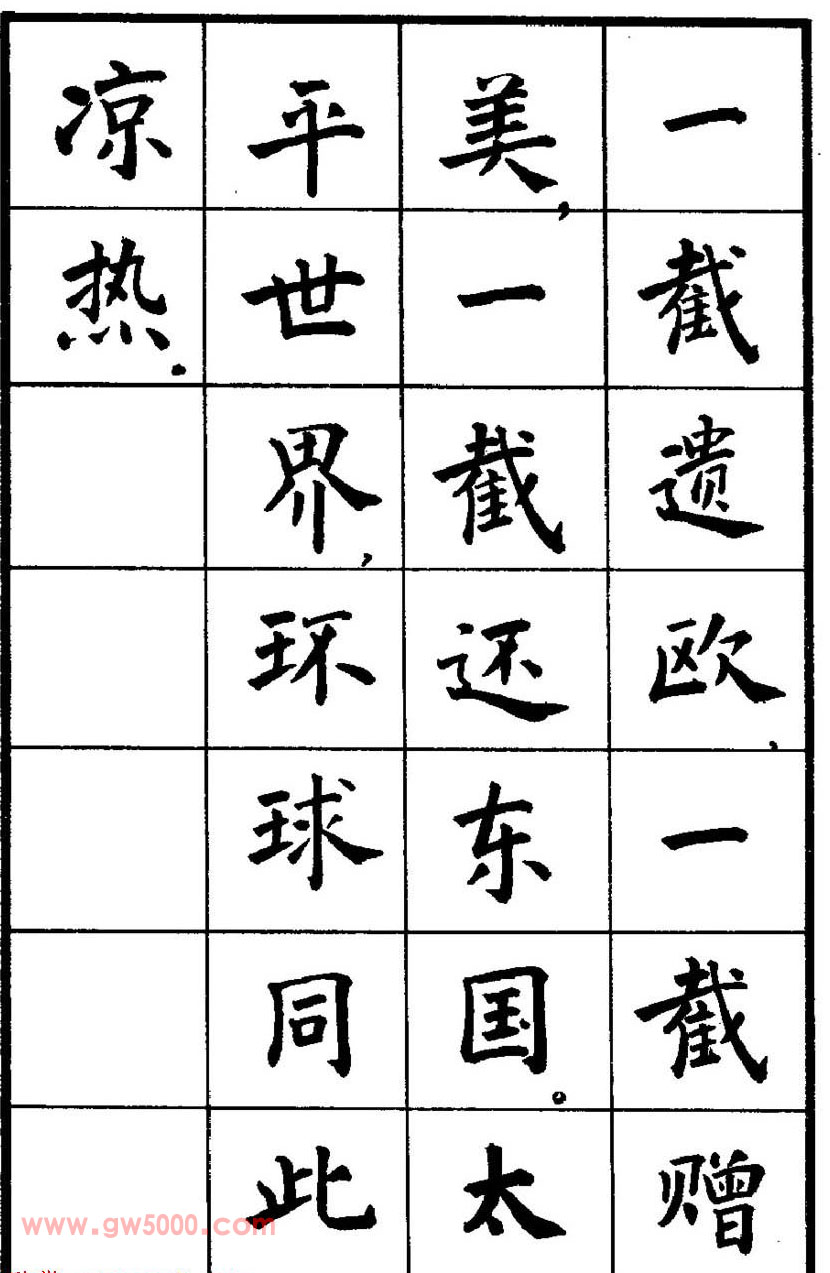 一截遗欧,一截赠
美,一截还东国。太
平世界,环球同此
凉热.
www.gw5000.com